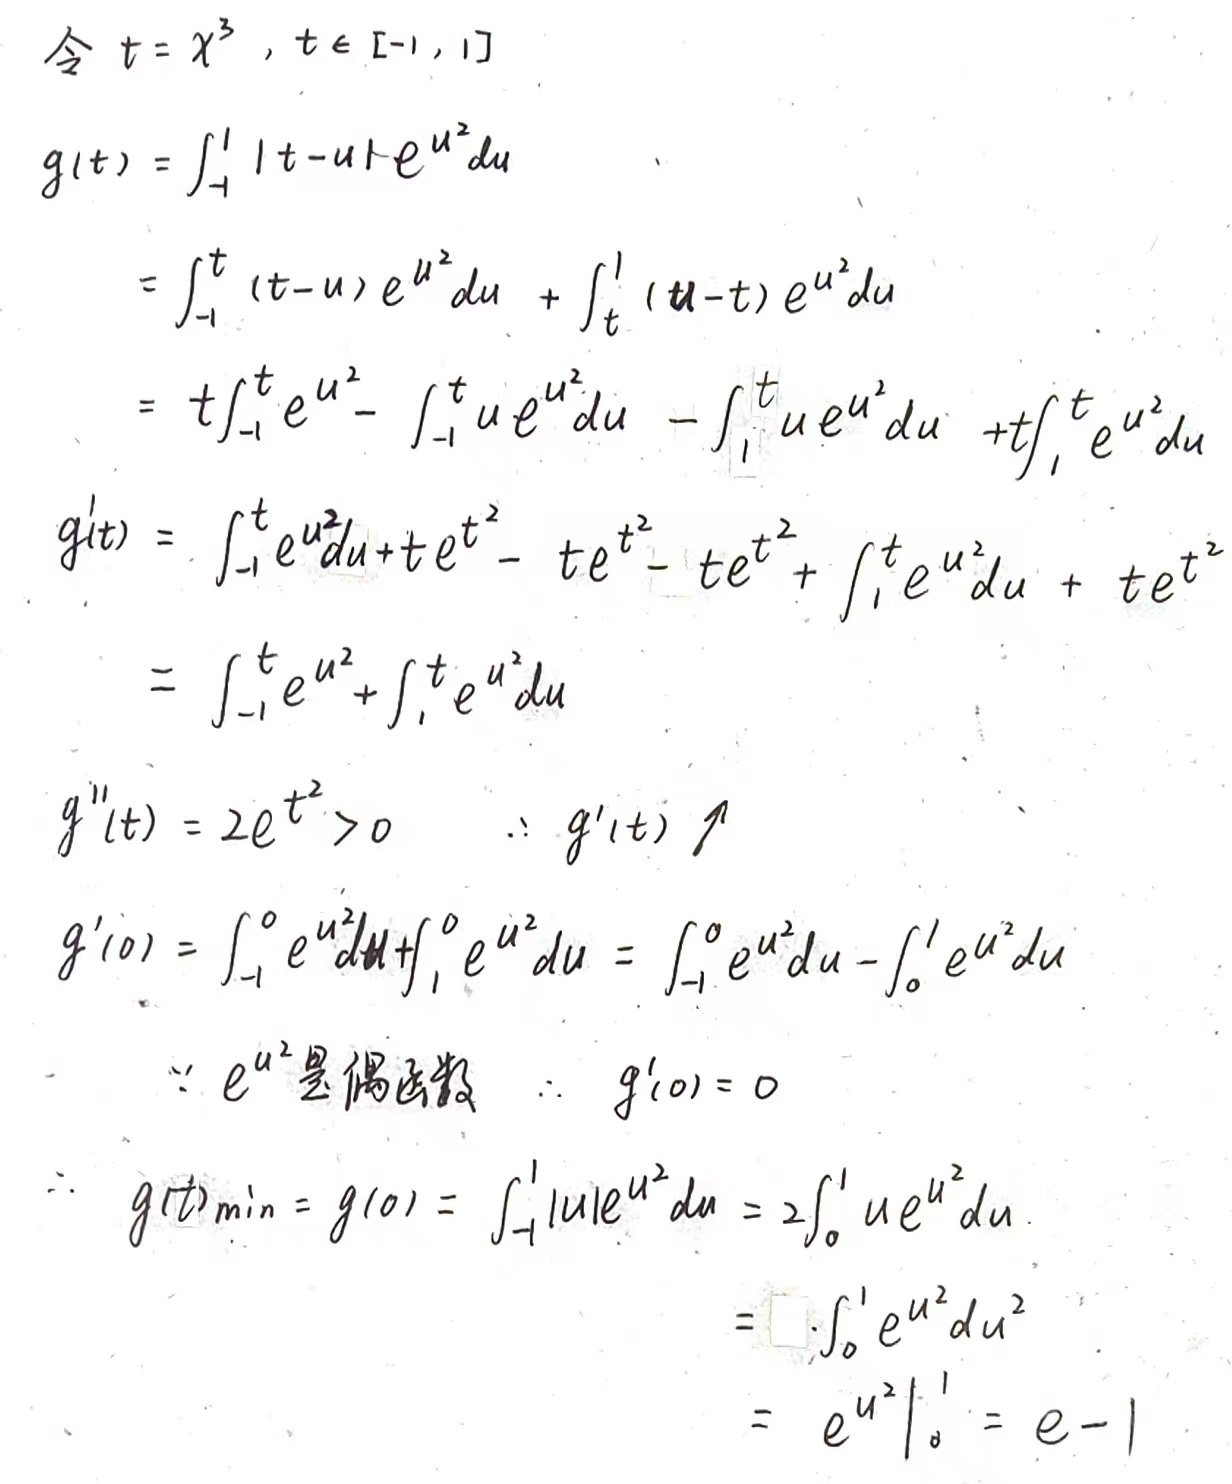 令 t = x³ , t ∈ [-1, 1]
g(t) = ∫₋₁¹ |t-u| e^{u²} du
= ∫₋₁^t (t-u) e^{u²} du + ∫_t^1 (u-t) e^{u²} du
= t∫₋₁^t e^{u²} - ∫₋₁^t u e^{u²} du - ∫₁^t u e^{u²} du + t∫₁^t e^{u²} du
g'(t) = ∫₋₁^t e^{u²} du + t e^{t²} - t e^{t²} - t e^{t²} + ∫₁^t e^{u²} du + t e^{t²}
= ∫₋₁^t e^{u²} + ∫₁^t e^{u²} du
g''(t) = 2e^{t²} > 0 ∴ g'(t) ↑
g'(0) = ∫₋₁^0 e^{u²} du + ∫₁^0 e^{u²} du = ∫₋₁^0 e^{u²} du - ∫₀^1 e^{u²} du
∵ e^{u²} 是偶函数 ∴ g'(0) = 0
∴ g(t)min = g(0) = ∫₋₁^1 |u| e^{u²} du = 2∫₀^1 u e^{u²} du.
= ·∫₀^1 e^{u²} du²
= e^{u²} |₀^1 = e - 1